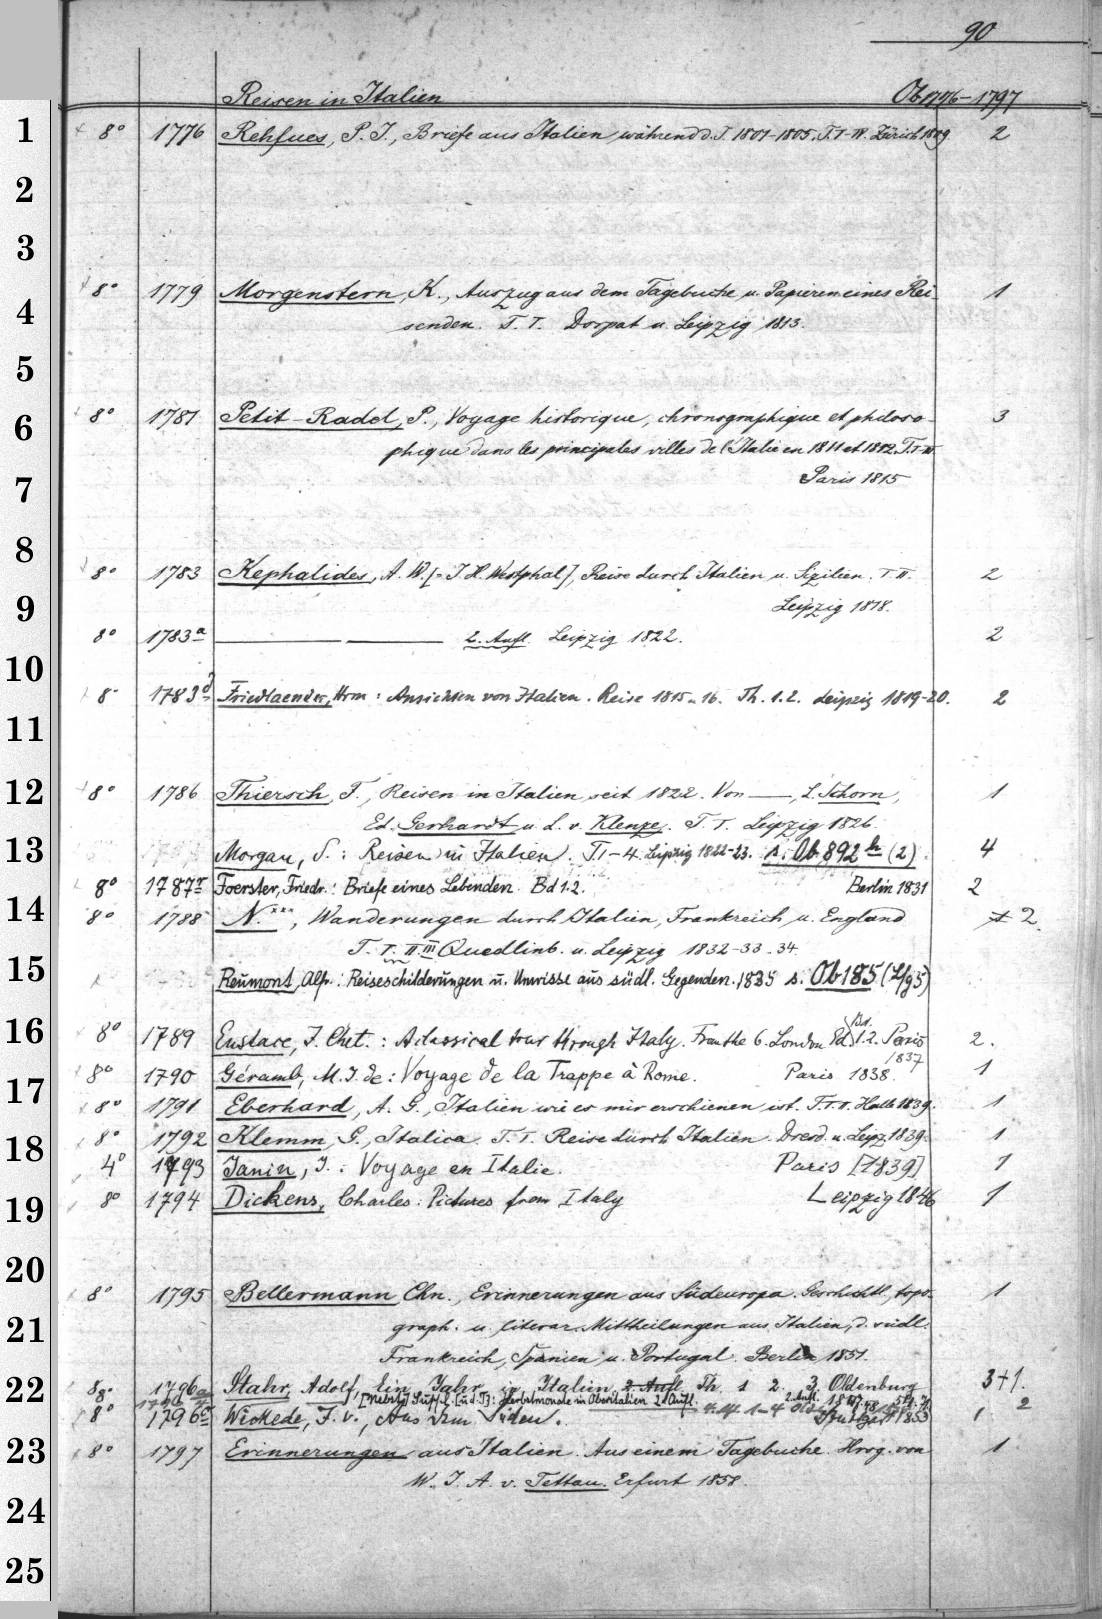 90
Reisen in Italien Ob 1776-1797
1 8° 1776 Rehfues, P. J., Briefe aus Italien während d. J. 1801-1805. T. I-IV. Zürich 1809 2
2
3
8° 1779 Morgenstern, K., Auszug aus dem Tagebuche u. Papieren eines Rei- 1
4 senden. T. I. Dorpat u. Leipzig 1813.
5
6 8° 1781 Petit-Radel, P., Voyage historique, chronographique et philoso- 3
phique dans les principales villes de l'Italie en 1811 et 1812. T. I-III
7 Paris 1815
8
8° 1783 Kephalides, A. W. [= J. H. Westphal], Reise durch Italien u. Sizilien. T. II. 2
9 Leipzig 1818.
8° 1783a 2. Aufl. Leipzig 1822. 2
10
8° 1783d Friedlaender, Hrm: Ansichten von Italien. Reise 1815 u. 16. Th. 1.2. Leipzig 1819-20. 2
11
12 8° 1786 Thiersch, F., Reisen in Italien seit 1822. Von ——, L. Schorn, 1
Ed. Gerhardt u. L. v. Klenze. T. I. Leipzig 1826.
13 Morgan, S.: Reisen in Italien. T. 1-4. Leipzig 1822-23. s. Ob 892 h (2) 4
8° 1787r Foerster, Friedr.: Briefe eines Lebenden. Bd 1.2. Berlin 1831 2
14 8° 1788 N.***, Wanderungen durch Italien, Frankreich u. England 2
T. I. II. III Quedlinb. u. Leipzig 1832-33. 34
15 Reumont, Alfr.: Reiseschilderungen u. Umrisse aus südl. Gegenden. 1835 s. Ob 185 (Lfg 5)
16 8° 1789 Eustace, J. Chet.: A classical tour through Italy. From the 6. London Ed. Bd. 1.2. Paris 2.
1837
17 8° 1790 Géramb, M. J. de: Voyage de la Trappe à Rome. Paris 1838. 1
8° 1791 Eberhard, A. G., Italien wie es mir erschienen ist. T. I. II. Halle 1839. 1
18 8° 1792 Klemm, G., Italica. T. I. Reise durch Italien. Dresd. u. Leipz. 1839. 1
4° 1793 Janin, J.: Voyage en Italie. Paris [1839] 1
19 8° 1794 Dickens, Charles: Pictures from Italy Leipzig 1846 1
20
8° 1795 Bellermann Chn., Erinnerungen aus Südeuropa. Geschichtl., topo- 1
21 graph. u. literar. Mittheilungen aus Italien, d. südl.
Frankreich, Spanien u. Portugal. Berlin 1851.
22 8° 1796a Stahr, Adolf, Ein Jahr in Italien. 2. Aufl. Th. 1 2. 3. Oldenburg 3+1.
[Nebst] Suppl. [u. d. T.]: Herbstmonate in Oberitalien 2. Aufl. 2
8° 1796c Wickede, J. v., Aus dem Süden. Stuttgart 1853 1
23 8° 1797 Erinnerungen aus Italien. Aus einem Tagebuche. Hrsg. von 1
W. J. A. v. Tettau. Erfurt 1858.
24
25